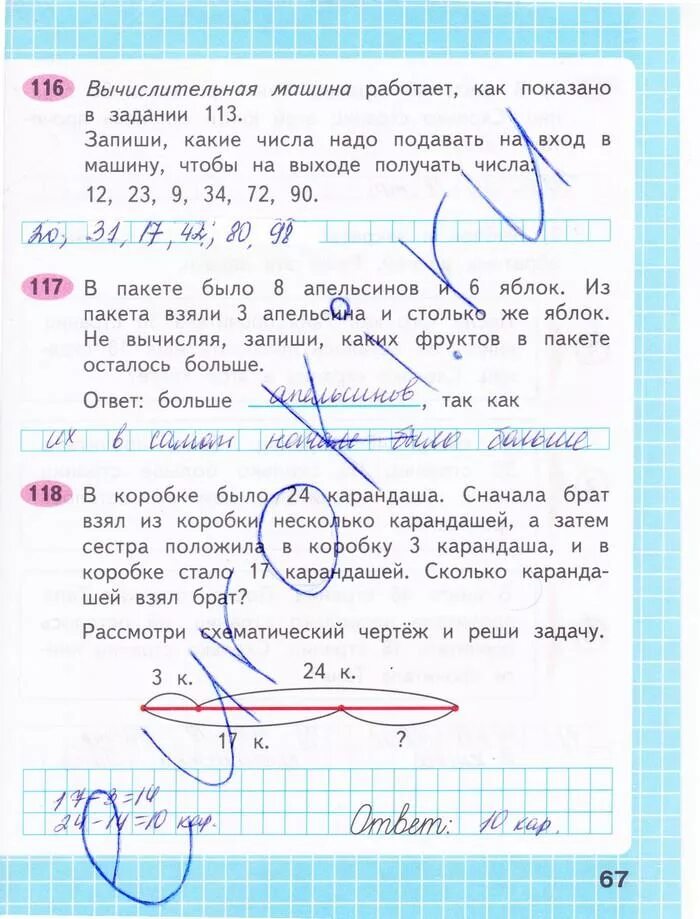 116 Вычислительная машина работает, как показано
в задании 113.
Запиши, какие числа надо подавать на вход в
машину, чтобы на выходе получать числа:
12, 23, 9, 34, 72, 90.
20, 31, 17, 42, 80, 98
117 В пакете было 8 апельсинов и 6 яблок. Из
пакета взяли 3 апельсина и столько же яблок.
Не вычисляя, запиши, каких фруктов в пакете
осталось больше.
Ответ: больше апельсинов, так как
их в самом начале было больше
118 В коробке было 24 карандаша. Сначала брат
взял из коробки несколько карандашей, а затем
сестра положила в коробку 3 карандаша, и в
коробке стало 17 карандашей. Сколько каранда-
шей взял брат?
Рассмотри схематический чертёж и реши задачу.
3 к. 24 к.
17 к. ?
17-3=14
24-14=10 кар. Ответ: 10 кар.
67